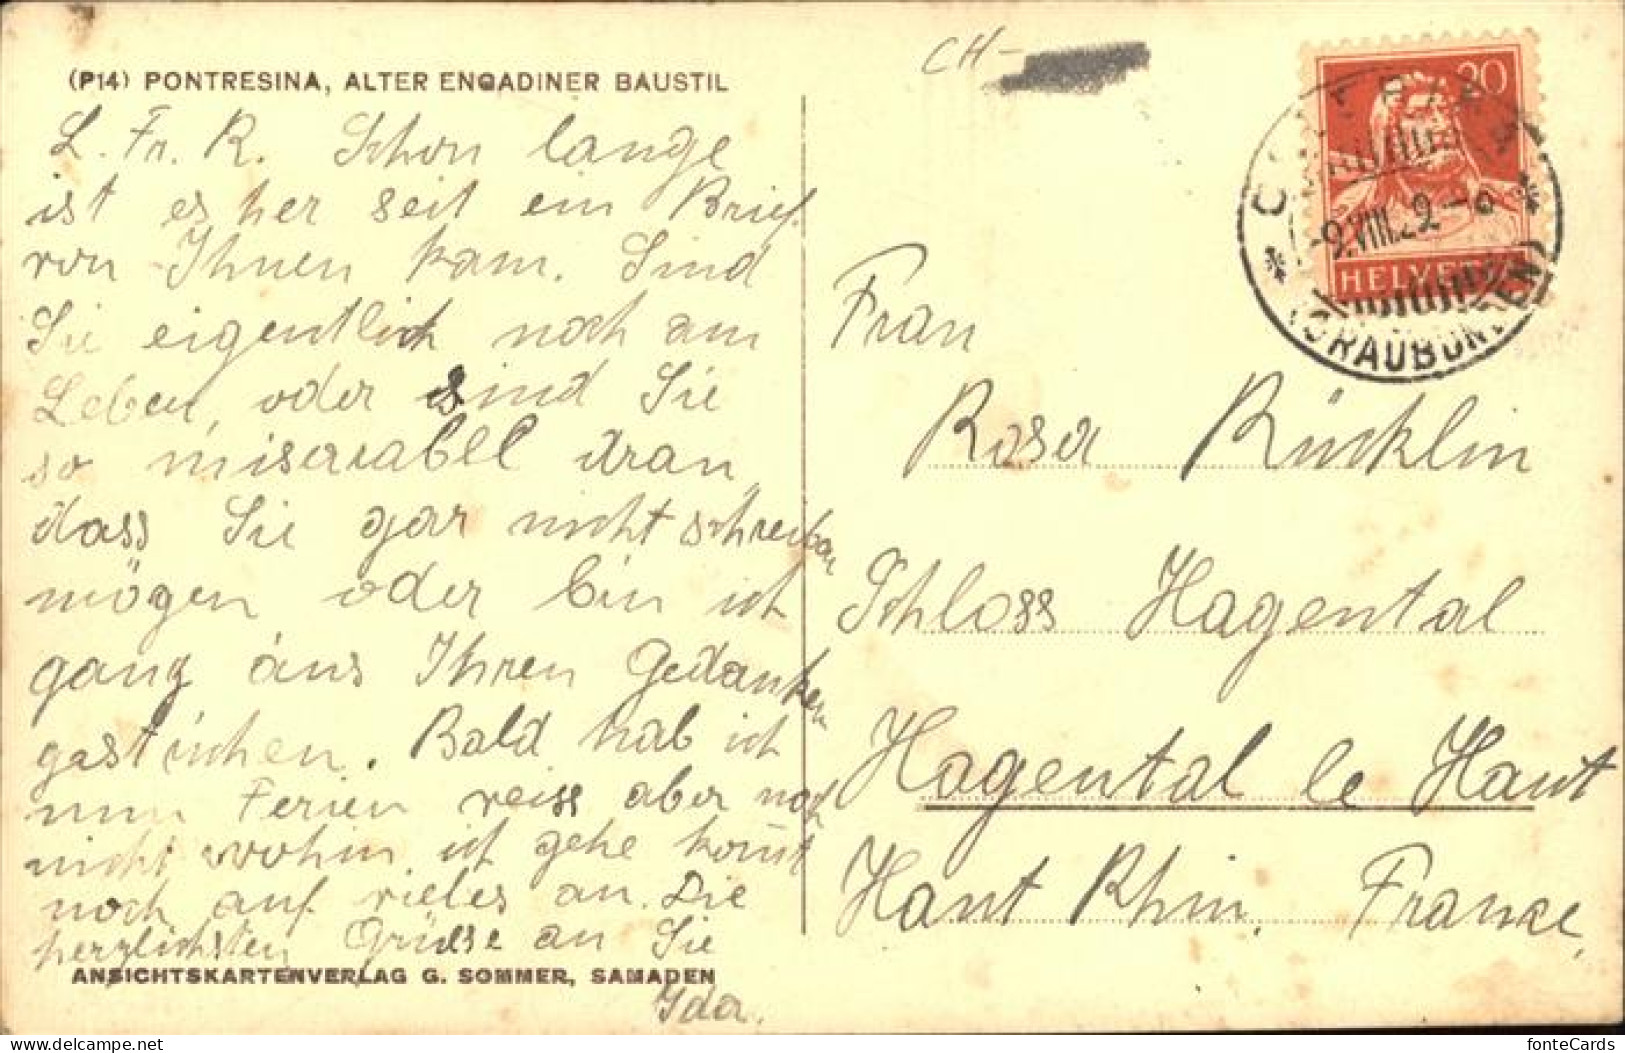 (P14) PONTRESINA, ALTER ENGADINER BAUSTIL
L. Fr. R. Schon lange
ist es her seit ein Brief
von Ihnen kam. Sind
Sie eigentlich noch am
Leben, oder sind Sie
so miserabel dran,
dass Sie gar nicht schreiben
mögen oder bin ich
ganz aus Ihren Gedanken
gestrichen. Bald hab ich
nun Ferien weiss aber noch
nicht wohin ich gehe kommt
noch auf vieles an. Die
herzlichsten Grüsse an Sie
ANSICHTSKARTENVERLAG G. SOMMER, SAMADEN
Ida.
CH-
20
HELVETIA
-9.VIII.29-
(GRAUBÜNDEN)
Frau
Rosa Rücklin
Schloss Hagental
Hagental le Haut
Haut Rhin. France,
fonteCards
delcampe.net